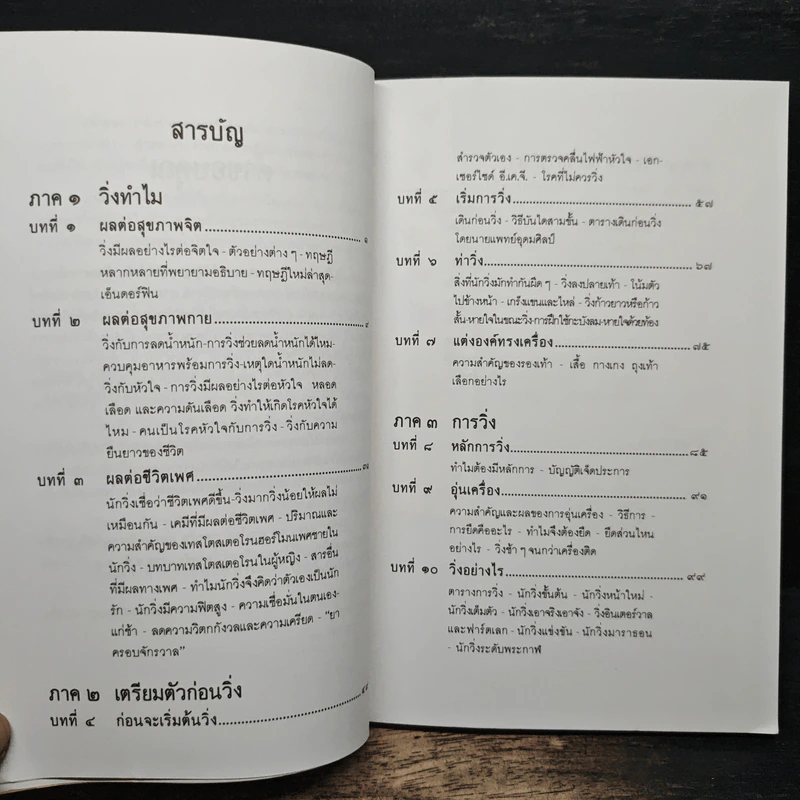 สารบัญ
ภาค ๑ วิ่งทำไม
บทที่ ๑ ผลต่อสุขภาพจิต ๑
วิ่งมีผลอย่างไรต่อจิตใจ - ตัวอย่างต่าง ๆ - ทฤษฎี
หลากหลายที่พยายามอธิบาย - ทฤษฎีใหม่ล่าสุด-
เอ็นดอร์ฟิน
บทที่ ๒ ผลต่อสุขภาพกาย
วิ่งกับการลดน้ำหนัก-การวิ่งช่วยลดน้ำหนักได้ไหม-
ควบคุมอาหารพร้อมการวิ่ง-เหตุใดน้ำหนักไม่ลด-
วิ่งกับหัวใจ - การวิ่งมีผลอย่างไรต่อหัวใจ หลอด
เลือด และความดันเลือด วิ่งทำให้เกิดโรคหัวใจได้
ไหม - คนเป็นโรคหัวใจกับการวิ่ง - วิ่งกับความ
ยืนยาวของชีวิต
บทที่ ๓ ผลต่อชีวิตเพศ
นักวิ่งเชื่อว่าชีวิตเพศดีขึ้น-วิ่งมากวิ่งน้อยให้ผลไม่
เหมือนกัน - เคมีที่มีผลต่อชีวิตเพศ - ปริมาณและ
ความสำคัญของเทสโตสเตอโรนฮอร์โมนเพศชายใน
นักวิ่ง - บทบาทเทสโตสเตอโรนในผู้หญิง - สารอื่น
ที่มีผลทางเพศ - ทำไมนักวิ่งจึงคิดว่าตัวเองเป็นนัก
รัก - นักวิ่งมีความฟิตสูง - ความเชื่อมั่นในตนเอง-
แก่ช้า - ลดความวิตกกังวลและความเครียด - "ยา
ครอบจักรวาล"
ภาค ๒ เตรียมตัวก่อนวิ่ง
บทที่ ๔ ก่อนจะเริ่มต้นวิ่ง
สำรวจตัวเอง - การตรวจคลื่นไฟฟ้าหัวใจ - เอก-
เซอร์ไซด์ อี.เค.จี. - โรคที่ไม่ควรวิ่ง
บทที่ ๕ เริ่มการวิ่ง ๕๗
เดินก่อนวิ่ง - วิธีบันไดสามขั้น - ตารางเดินก่อนวิ่ง
โดยนายแพทย์อุดมศิลป์
บทที่ ๖ ท่าวิ่ง ๖๗
สิ่งที่นักวิ่งมักทำกันผิด ๆ - วิ่งลงปลายเท้า - โน้มตัว
ไปข้างหน้า - เกร็งแขนและไหล่ - วิ่งก้าวยาวหรือก้าว
สั้น-หายใจในขณะวิ่ง-การฝึกใช้กะบังลม-หายใจด้วยท้อง
บทที่ ๗ แต่งองค์ทรงเครื่อง ๗๕
ความสำคัญของรองเท้า - เสื้อ กางเกง ถุงเท้า
เลือกอย่างไร
ภาค ๓ การวิ่ง
บทที่ ๘ หลักการวิ่ง ๘๕
ทำไมต้องมีหลักการ - บัญญัติเจ็ดประการ
บทที่ ๙ อุ่นเครื่อง ๙๑
ความสำคัญและผลของการอุ่นเครื่อง - วิธีการ -
การยืดคืออะไร - ทำไมจึงต้องยืด - ยืดส่วนไหน
อย่างไร - วิ่งช้า ๆ จนกว่าเครื่องติด
บทที่ ๑๐ วิ่งอย่างไร ๙๙
ตารางการวิ่ง - นักวิ่งขั้นต้น - นักวิ่งหน้าใหม่ -
นักวิ่งเต็มตัว - นักวิ่งเอาจริงเอาจัง - วิ่งอินเตอร์วาล
และฟาร์ตเลก - นักวิ่งแข่งขัน - นักวิ่งมาราธอน
- นักวิ่งระดับพระกาฬ